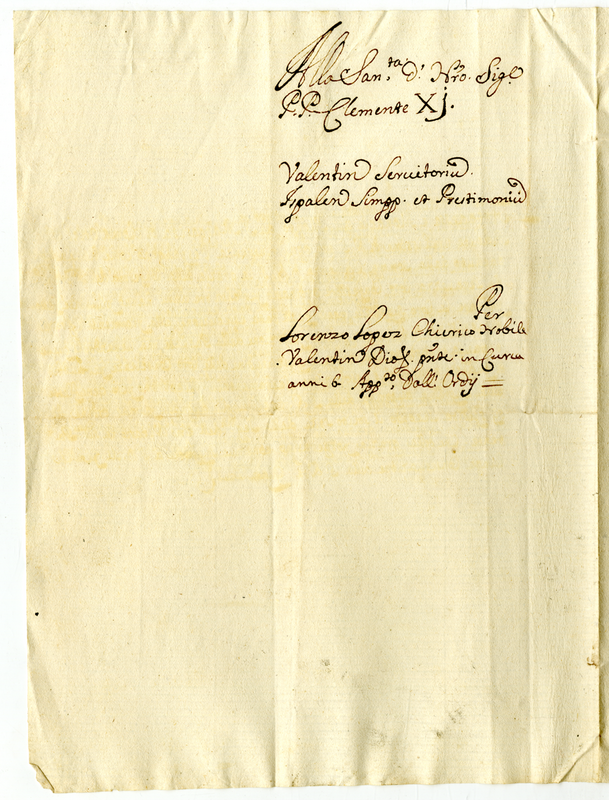 Alla San.ta d.' Nro. Sig.e
P.P. Clemente Xj.
Valentin Seruitoriu.
Ispalen Simpp. et Prestimoniu
Per
Lorenzo Lopez Chierico Nobile
Valentin Dioς. pnte in Curia
anni 6 App.to Dall' Ordij =